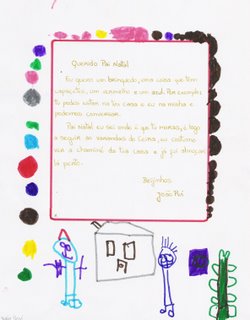 Querido Pai Natal
Eu quero um brinquedo, uma coisa que tem
capacetes, um vermelho e um azul. Por exemplo:
tu podes estar na tua casa e eu na minha e
podemos conversar.
Pai Natal eu sei onde é que tu moras, é logo
a seguir às varandas do Feira, eu costumo
ver a chaminé da tua casa e já fui almoçar
lá perto.
Beijinhos
João Rui